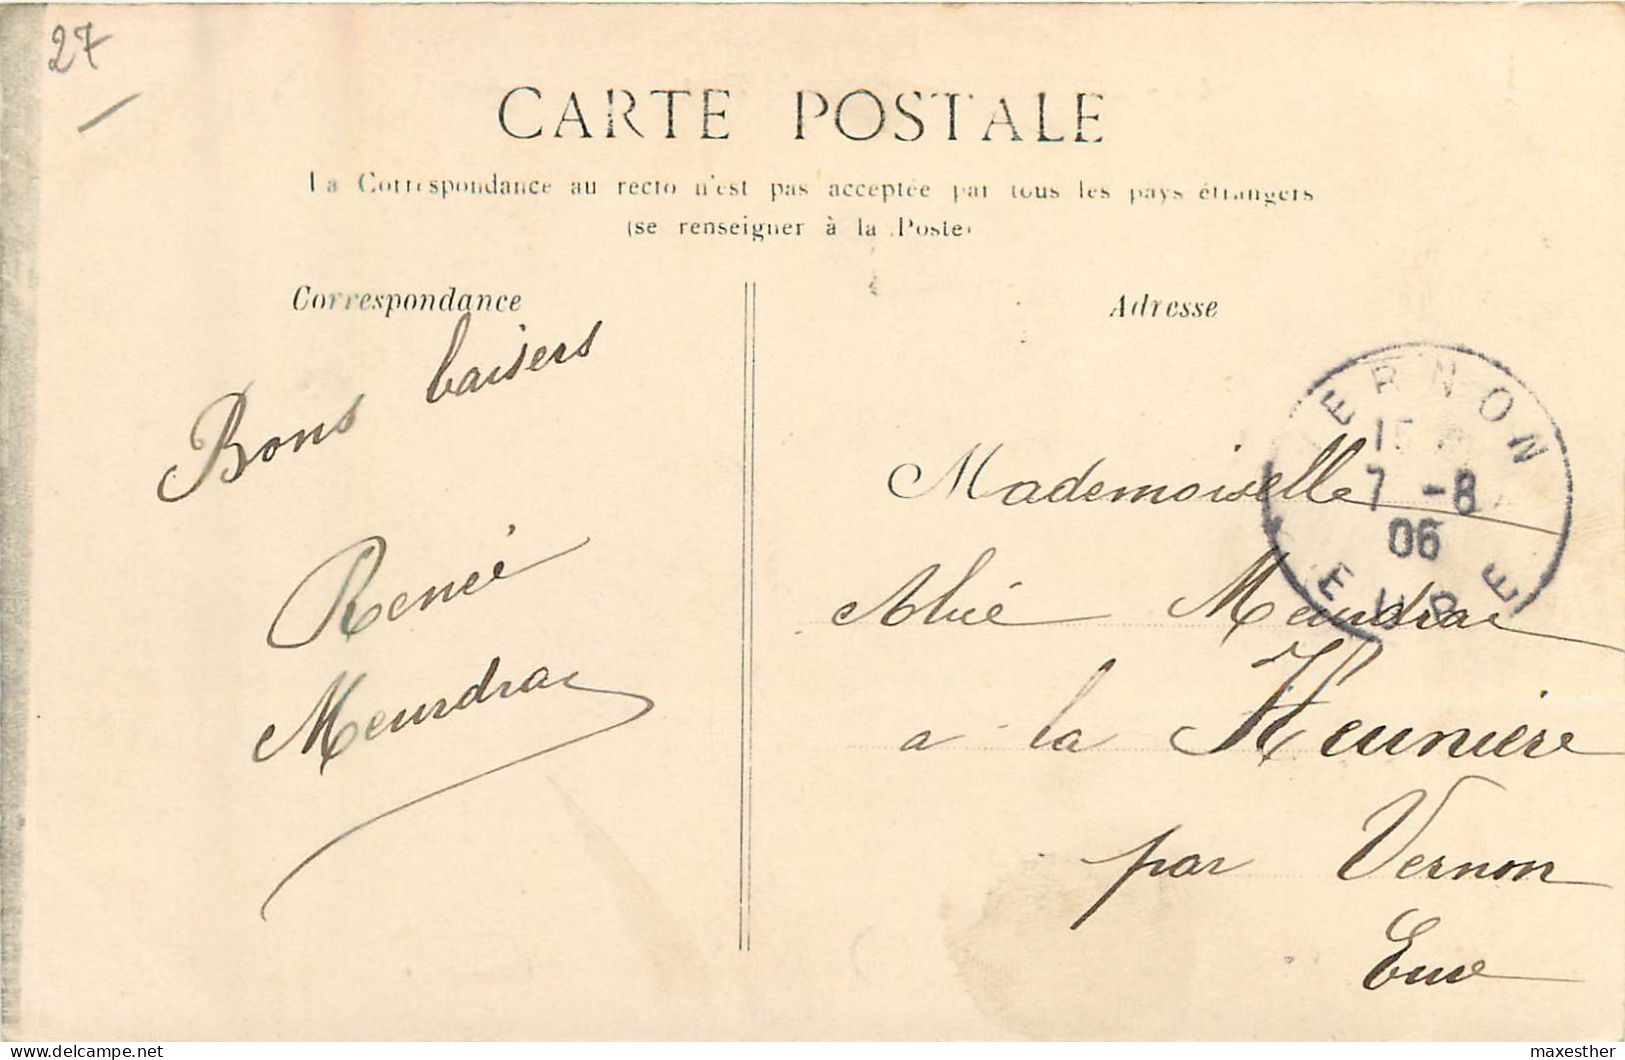 27
CARTE POSTALE
La Correspondance au recto n'est pas acceptée par tous les pays étrangers
(se renseigner à la Poste)
Correspondance
Adresse
Bons baisers
Renée
Meurdrac
VERNON
15
7 -8
06
EURE
Mademoiselle
Meurdrac
a la Heunière
par Vernon
Eure
delcampe.net
maxesther